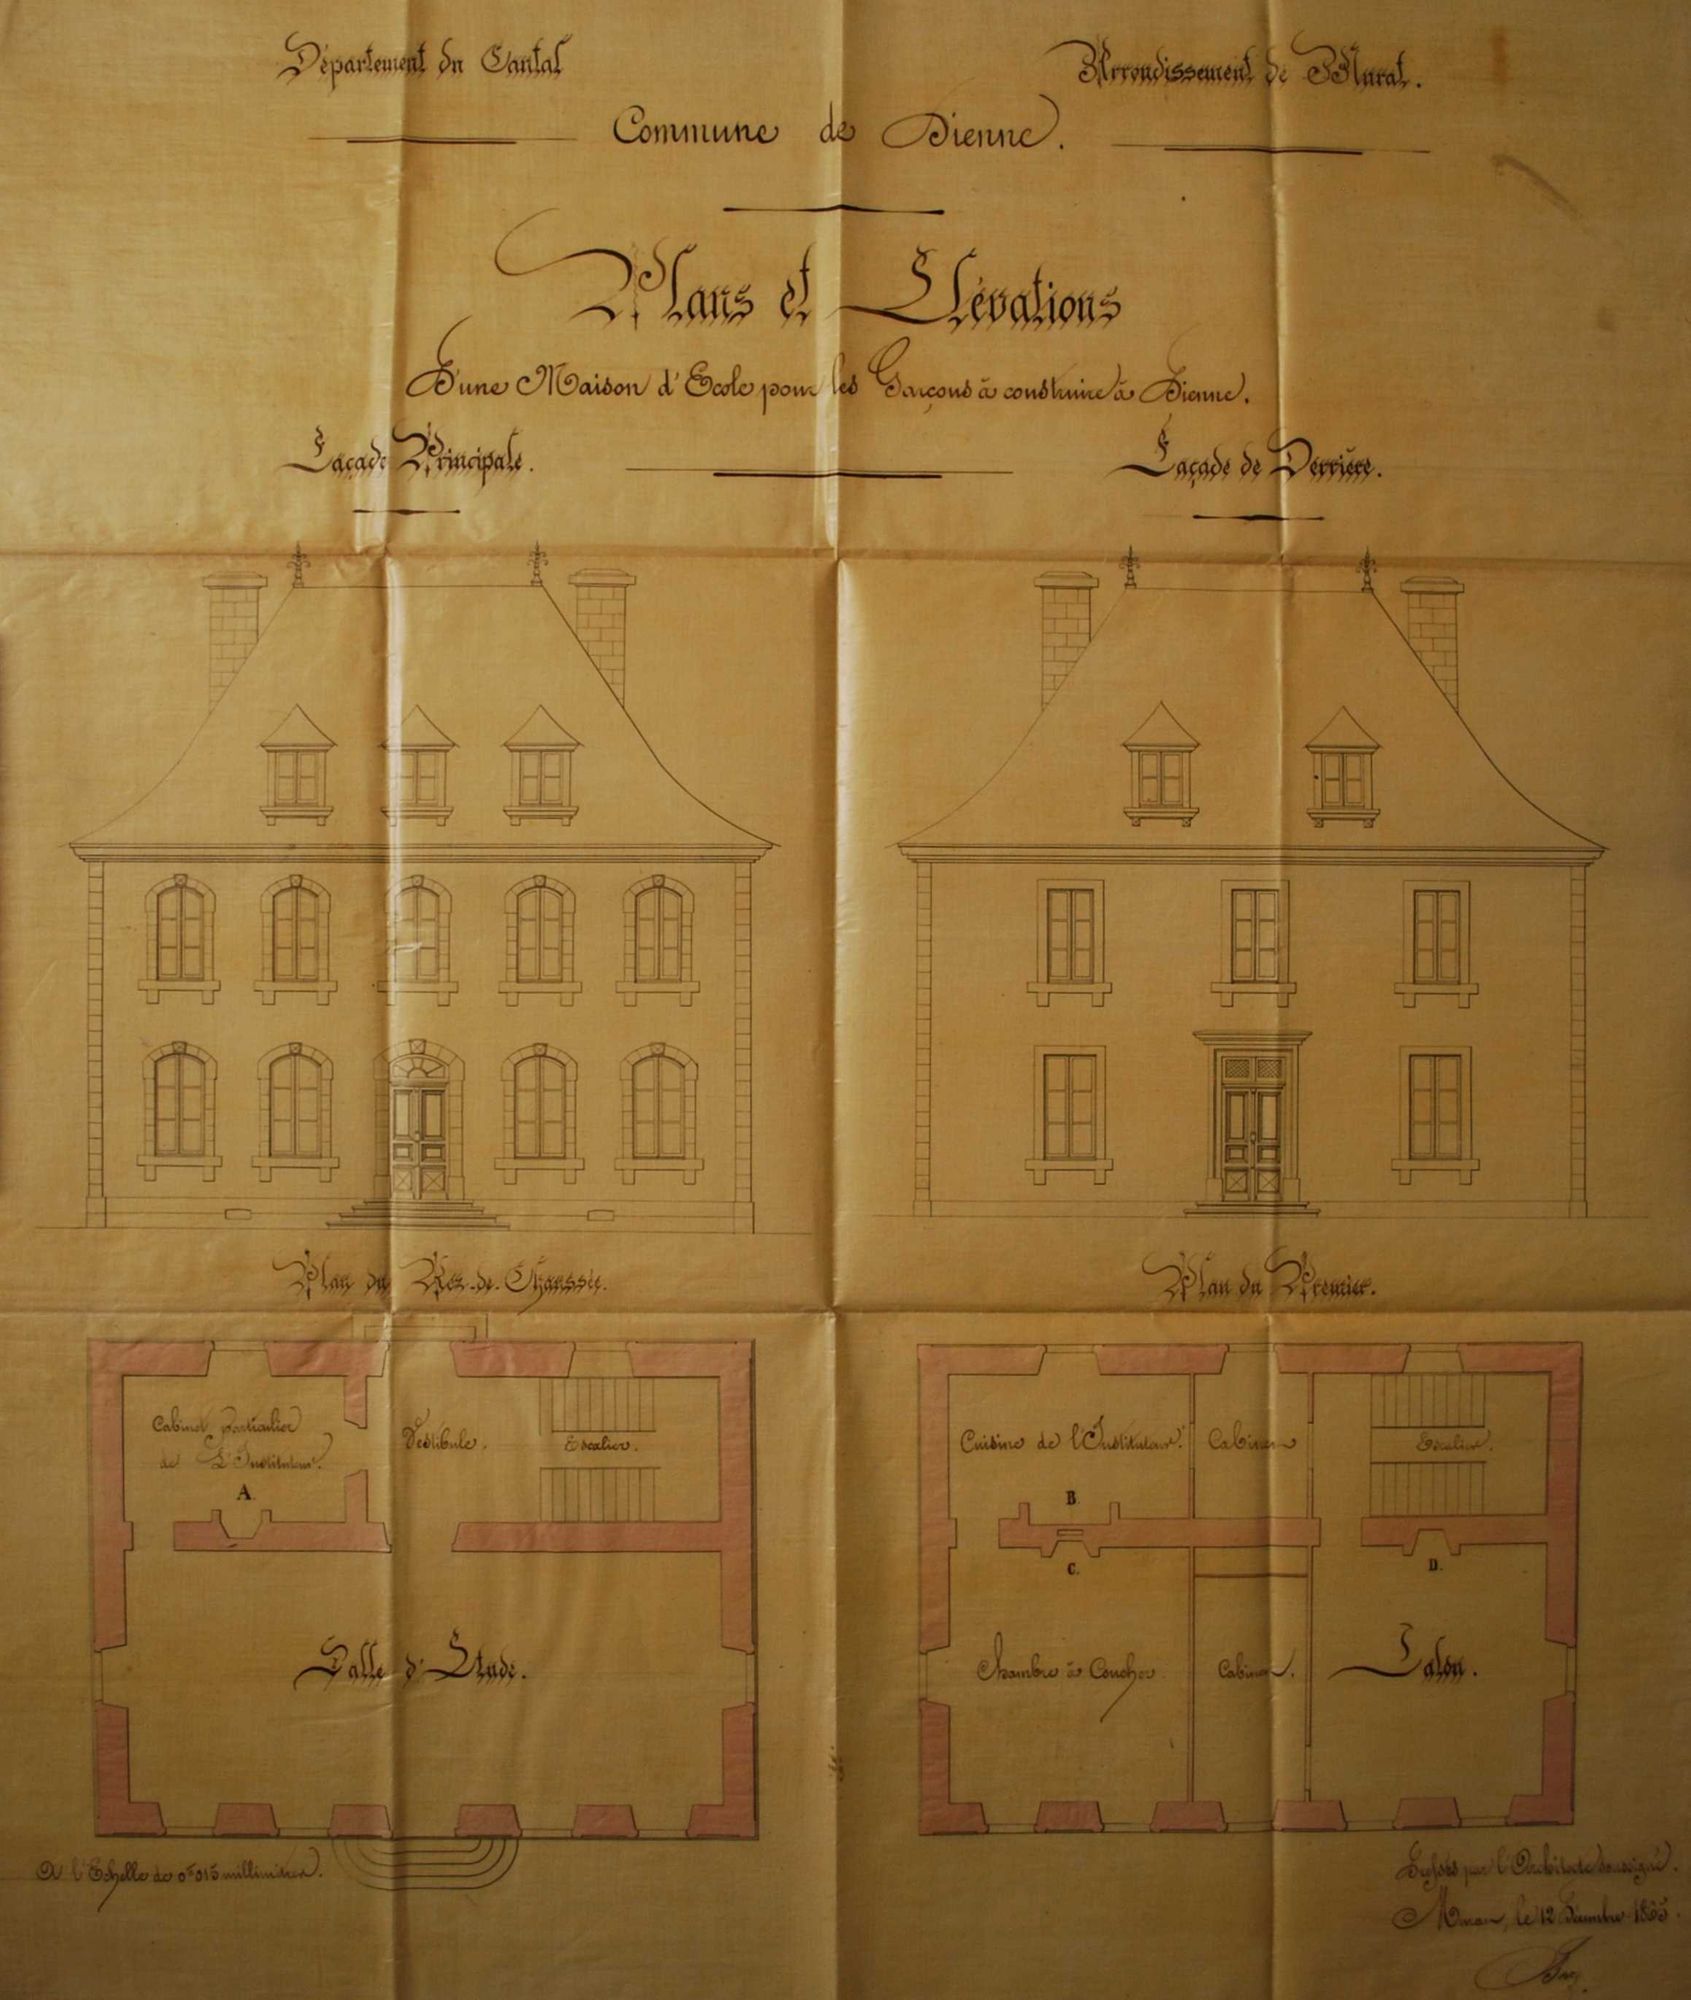 Département du Cantal
Arrondissement de Murat.
Commune de Dienne.
Plans et Elévations
D'une Maison d'Ecole pour les Garçons à construire à Dienne.
Façade Principale.
Façade de Derrière.
Plan du Rez-de-Chaussée.
Plan du Premier.
Cabinet particulier
de L'Instituteur.
Vestibule.
Escalier.
A.
Salle d'Etude.
Cuisine de l'Instituteur.
Cabinet
Escalier.
B.
C.
D.
Chambre à Coucher.
Cabinet.
Salon.
A l'Echelle de 0m015 millimètres.
Dressés par l'Architecte soussigné.
Murat, le 12 Décembre 1865.